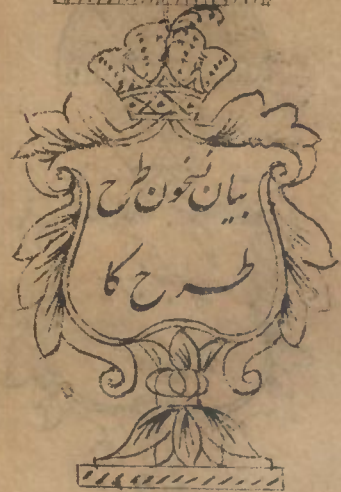 بیان نسخون طرح
طرح کا